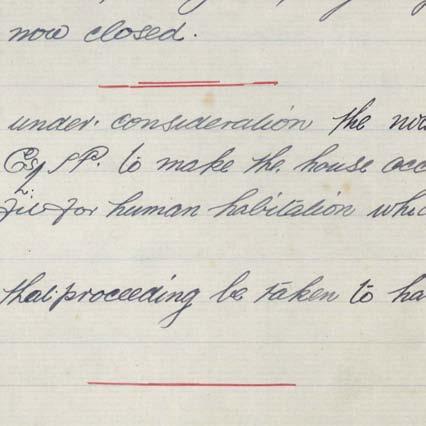 now closed.
under consideration the no
Esq J.P. to make the house occ
fit for human habitation whi
that proceeding be taken to ha